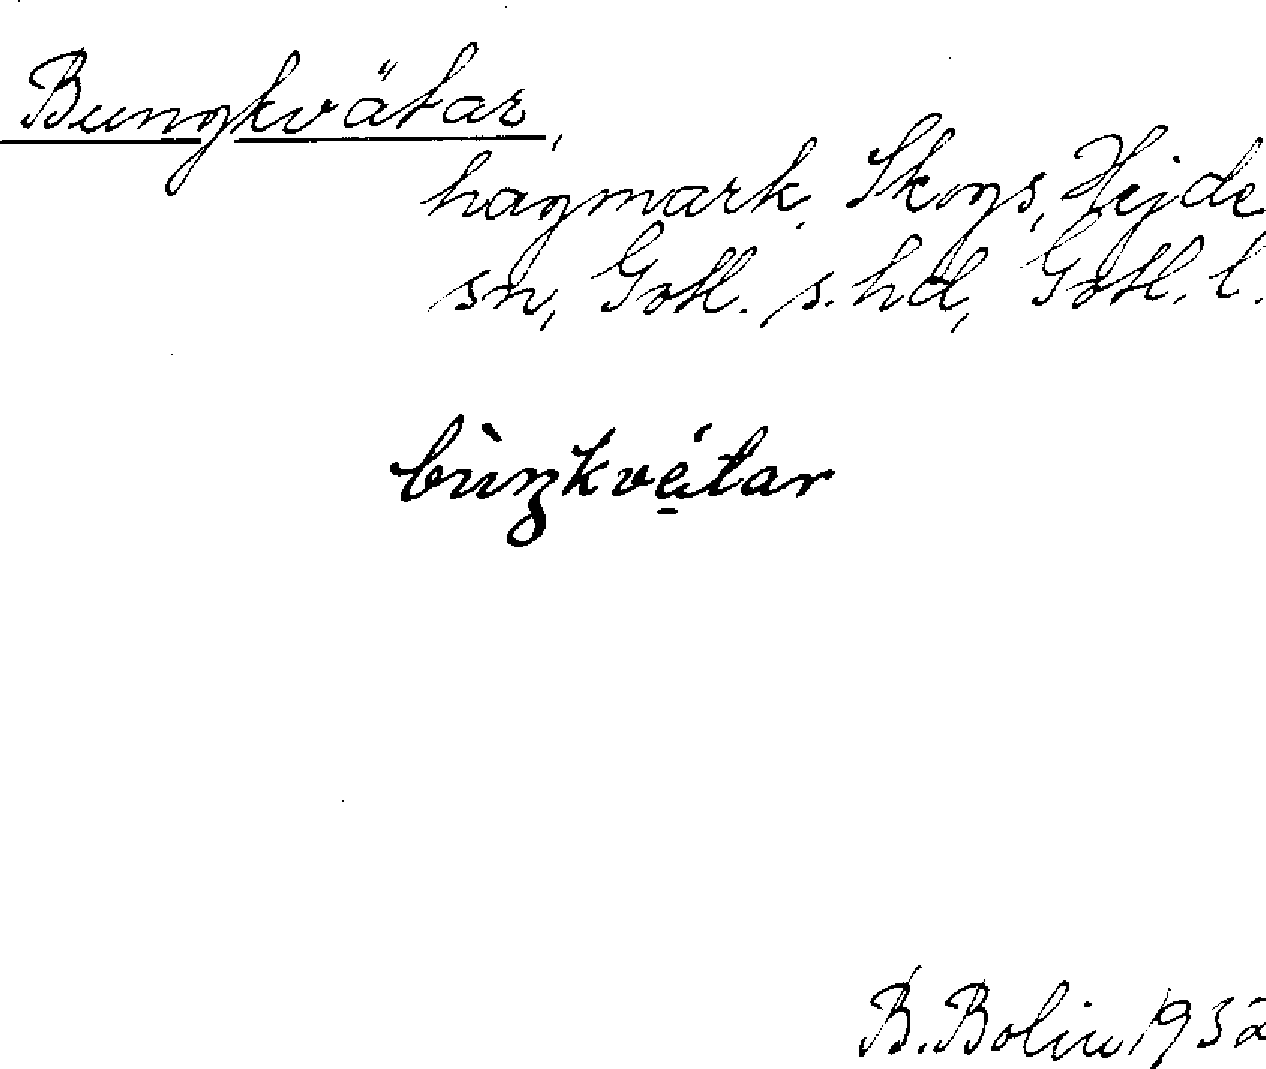 Bungkvätar,
hagmark, Skogs, Hejde
sn, Gotl. s. hd, Gotl. l.
bùŋkvätar
B. Bolin 1932